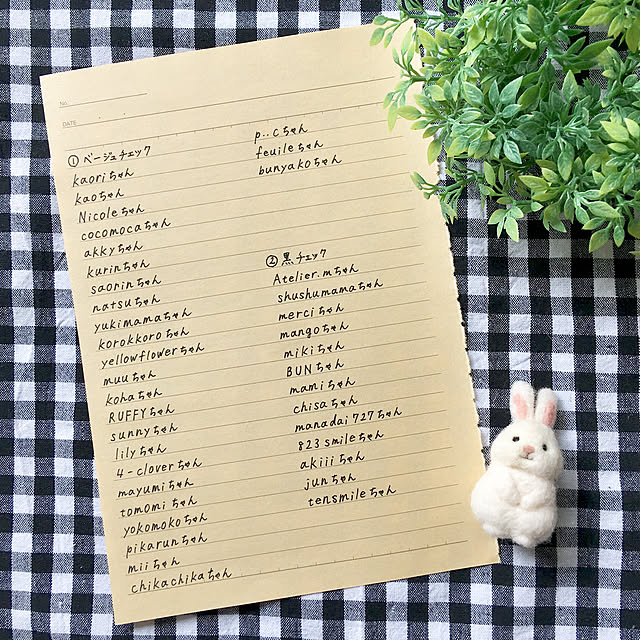 No.
DATE
① ベージュチェック
kaoriちゃん
kaoちゃん
Nicoleちゃん
cocomocaちゃん
akkyちゃん
kurinちゃん
saorinちゃん
natsuちゃん
yukimamaちゃん
korokkoroちゃん
yellowflowerちゃん
muuちゃん
kohaちゃん
RUFFYちゃん
sunnyちゃん
lilyちゃん
4-cloverちゃん
mayumiちゃん
tomomiちゃん
yokomokoちゃん
pikarunちゃん
miiちゃん
chikachikaちゃん
p..cちゃん
feuileちゃん
bunyakoちゃん
② 黒チェック
Atelier.mちゃん
shushumamaちゃん
merciちゃん
mangoちゃん
mikiちゃん
BUNちゃん
mamiちゃん
chisaちゃん
manadai727ちゃん
823smileちゃん
akiiiちゃん
junちゃん
tensmileちゃん